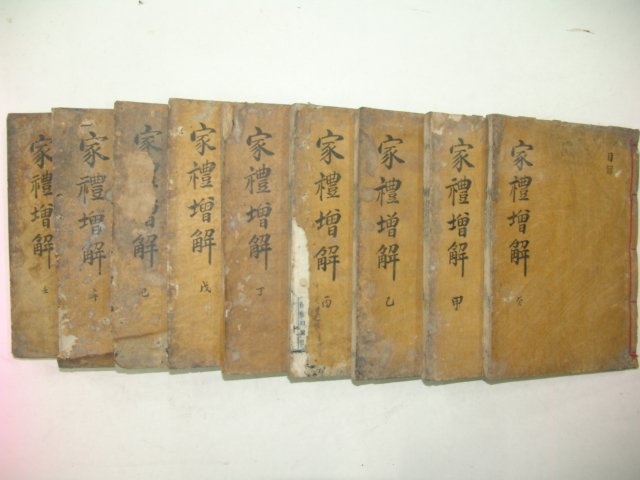 家禮增解 癸
目錄
家禮增解 甲
家禮增解 乙
家禮增解 丙
家禮增解 丁
家禮增解 戊
家禮增解 己
家禮增解 辛
家禮增解 壬